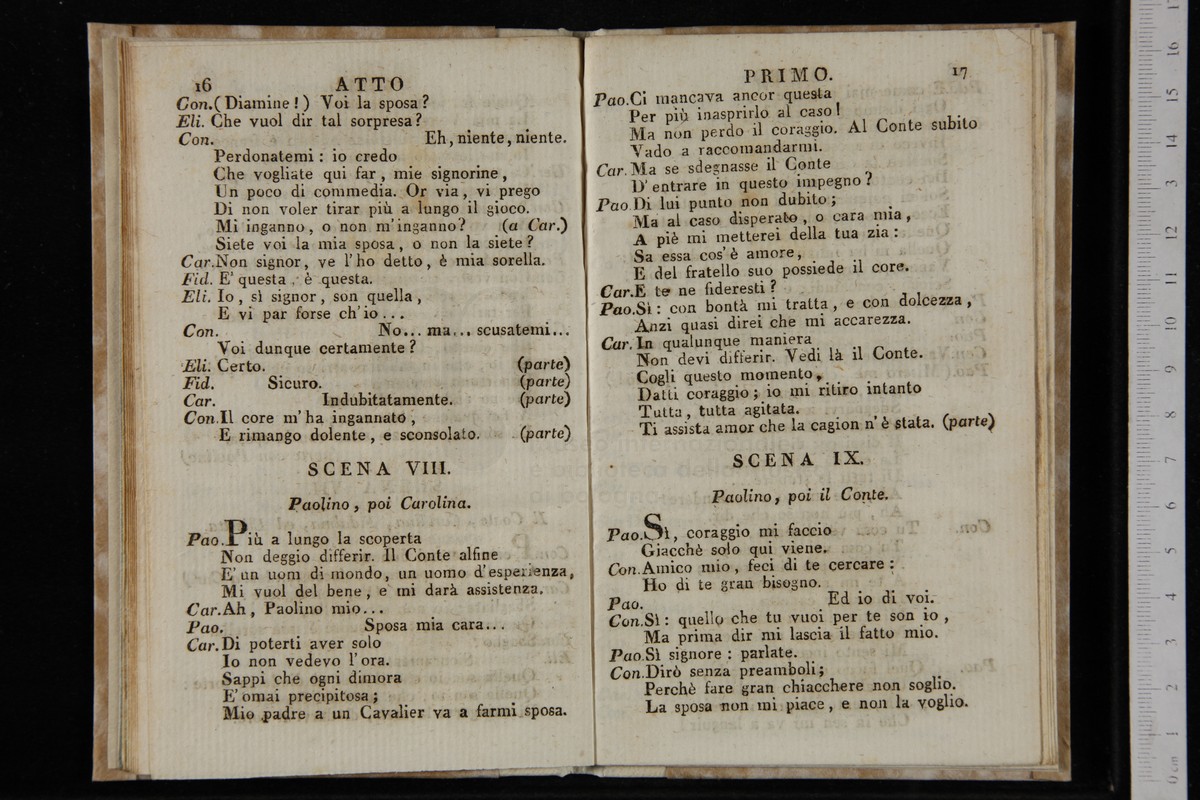 16 ATTO
Con.(Diamine!) Voi la sposa?
Eli. Che vuol dir tal sorpresa?
Con. Eh, niente, niente.
Perdonatemi: io credo
Che vogliate qui far, mie signorine,
Un poco di commedia. Or via, vi prego
Di non voler tirar più a lungo il gioco.
Mi inganno, o non m'inganno? (a Car.)
Siete voi la mia sposa, o non la siete?
Car.Non signor, ve l'ho detto, è mia sorella.
Fid. E' questa, è questa.
Eli. Io, sì signor, son quella,
E vi par forse ch'io...
Con. No... ma... scusatemi...
Voi dunque certamente?
Eli. Certo. (parte)
Fid. Sicuro. (parte)
Car. Indubitatamente. (parte)
Con.Il core m'ha ingannato,
E rimango dolente, e sconsolato. (parte)
SCENA VIII.
Paolino, poi Carolina.
Pao.Più a lungo la scoperta
Non deggio differir. Il Conte alfine
E' un uom di mondo, un uomo d'esperienza,
Mi vuol del bene, e mi darà assistenza.
Car.Ah, Paolino mio...
Pao. Sposa mia cara...
Car.Di poterti aver solo
Io non vedevo l'ora.
Sappi che ogni dimora
E' omai precipitosa;
Mio padre a un Cavalier va a farmi sposa.
PRIMO. 17
Pao.Ci mancava ancor questa
Per più inasprirlo al caso!
Ma non perdo il coraggio. Al Conte subito
Vado a raccomandarmi.
Car.Ma se sdegnasse il Conte
D'entrare in questo impegno?
Pao.Di lui punto non dubito;
Ma al caso disperato, o cara mia,
A piè mi metterei della tua zia:
Sa essa cos'è amore,
E del fratello suo possiede il core.
Car.E te ne fideresti?
Pao.Sì: con bontà mi tratta, e con dolcezza,
Anzi quasi direi che mi accarezza.
Car.In qualunque maniera
Non devi differir. Vedi là il Conte.
Cogli questo momento,
Datti coraggio; io mi ritiro intanto
Tutta, tutta agitata.
Ti assista amor che la cagion n'è stata. (parte)
SCENA IX.
Paolino, poi il Conte.
Pao.Sì, coraggio mi faccio
Giacchè solo qui viene.
Con.Amico mio, feci di te cercare:
Ho di te gran bisogno.
Pao. Ed io di voi.
Con.Sì: quello che tu vuoi per te son io,
Ma prima dir mi lascia il fatto mio.
Pao.Sì signore: parlate.
Con.Dirò senza preamboli;
Perchè fare gran chiacchere non soglio.
La sposa non mi piace, e non la voglio.